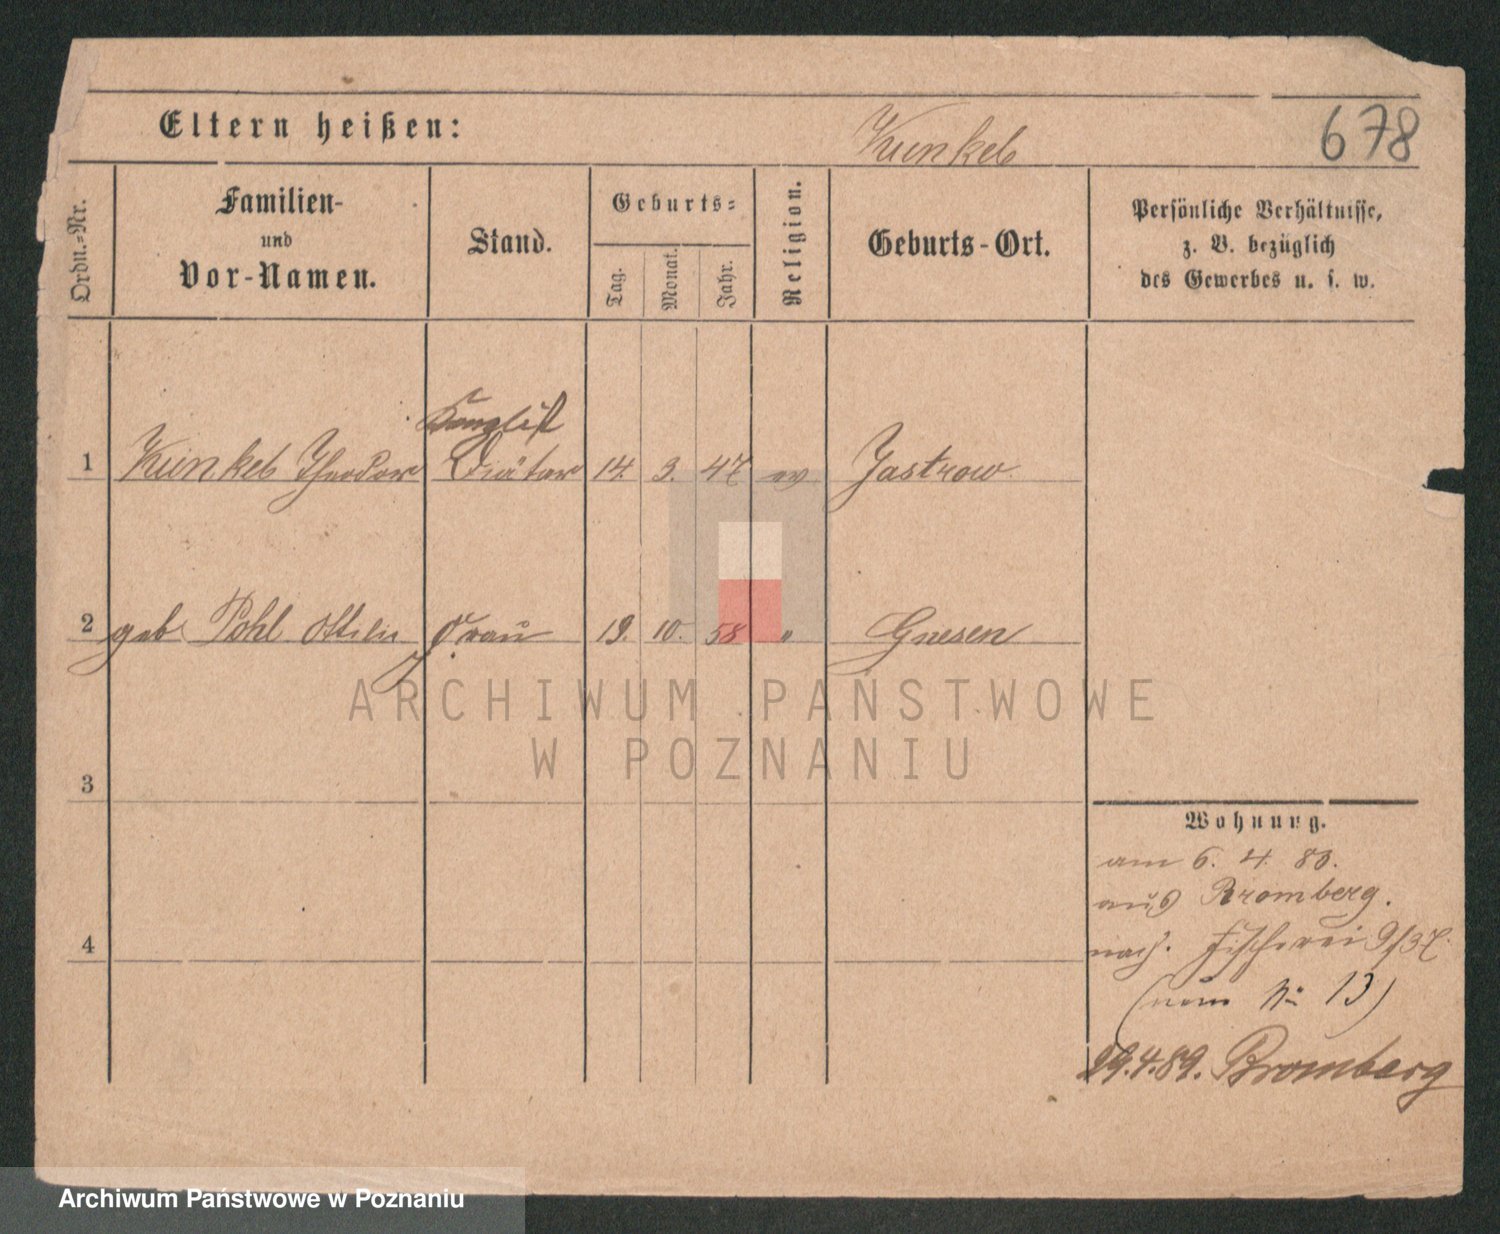 Eltern heißen:
Kunkel
678
Ordn.-Nr.
Familien-
und
Vor-Namen.
Stand.
Geburts-
Tag.
Monat.
Jahr.
Religion.
Geburts-Ort.
Persönliche Verhältnisse,
z. B. bezüglich
des Gewerbes u. s. w.
Kanzlist
1 Kunkel Theodor Diätar 14. 3. 47 ev Jastrow
2 geb Pohl Ottilie Frau 19. 10. 58 " Gnesen
3
4
Wohnung.
am 6. 4. 83.
aus Bromberg.
nach. Fischerei 9/37.
(nun No 13)
29.4.89. Bromberg
ARCHIWUM PAŃSTWOWE
W POZNANIU
Archiwum Państwowe w Poznaniu